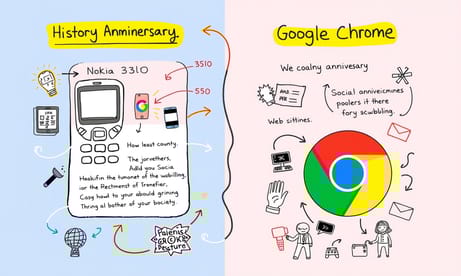 History Anminersary.
Nokia 3310
3510
550
How least county.
The jorvethers,
Adld you Socia
Heakifin the tumonet of the webailling,
ior the Rectmenst of Tranefier,
Cosy howl to your abould grining
Thring al bother of your bociaty.
Google Chrome
We coalny annivesary
Social anniveicmines
poolers it there
fory scwbbling.
Web sittines.